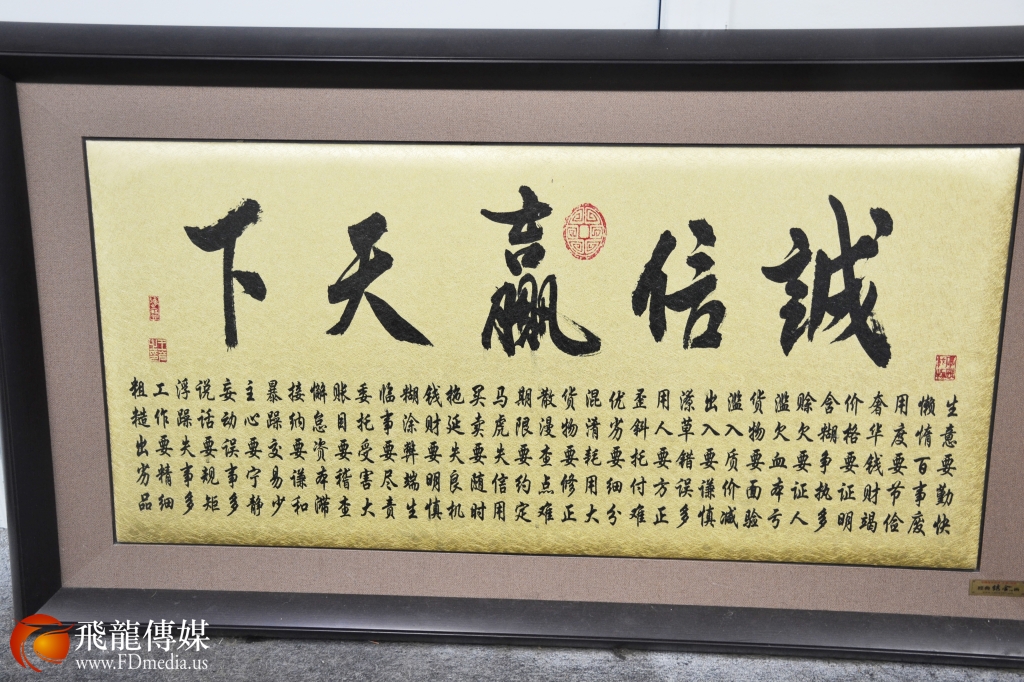 誠信赢天下
生意要勤快
懒惰百事废
用度要节俭
奢华钱财竭
价格要证明
含糊争执多
赊欠要证人
滥欠血本亏
货物要面验
滥入质价减
出入要谦慎
潦草错误多
用人要方正
歪斜托付难
优劣要细分
混淆耗用大
货物要修正
散漫查点难
期限要约定
马虎失信用
买卖要随时
拖延失良机
钱财要明慎
糊涂弊端生
临事要尽责
委托受害大
账目要稽查
懈怠资本滞
接纳要谦和
暴躁交易少
主心要宁静
妄动误事多
说话要规矩
浮躁失事多
工作要精细
粗糙出劣品
飛龍傳媒
www.FDmedia.us